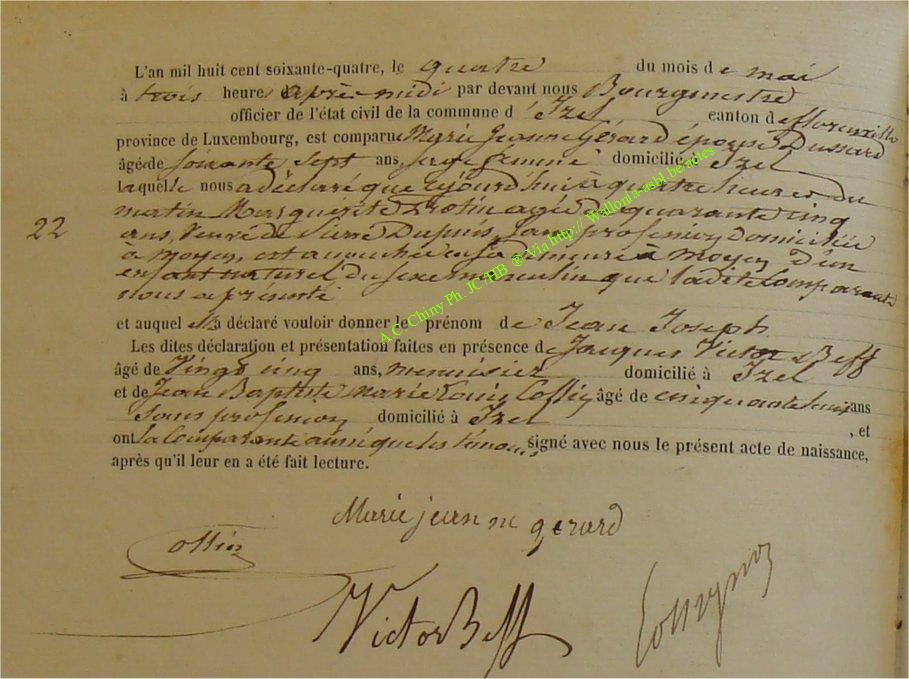 L'an mil huit cent soixante-quatre, le quatre du mois de mai
à trois heures après midi par devant nous Bourgmestre
officier de l'état civil de la commune d'Izel canton de florenville
province de Luxembourg, est comparue Marie Jeanne Gérard épouse Dussard
âgée de soixante sept ans, sage femme domiciliée à Izel
laquelle nous a déclaré que aujourd'hui à quatre heures du
22
matin Marguérite agée de quarante cinq
ans, veuve de Pierre Dupuis, sans profession, domiciliée
à moyen, est accouchée en sa demeure à moyen d'un
enfant naturel du sexe masculin que ladite Comparante
nous a présenté
et auquel elle a déclaré vouloir donner le prénom de Jean Joseph
Les dites déclaration et présentation faites en présence de Jacques Victor Beff
âgé de Vingt cinq ans, menuisier domicilié à Izel
et de Jean Baptiste Marie Louis Collin âgé de cinquante huit ans
Sans profession domicilié à Izel , et
ont la Comparante ainsi que les témoins signé avec nous le présent acte de naissance,
après qu'il leur en a été fait lecture.
Marie jeanne gerard
Collin
Victor Beff
A.C. Chiny Ph. JC/HB ® Via http:// Wallonia-asbl.be/actes